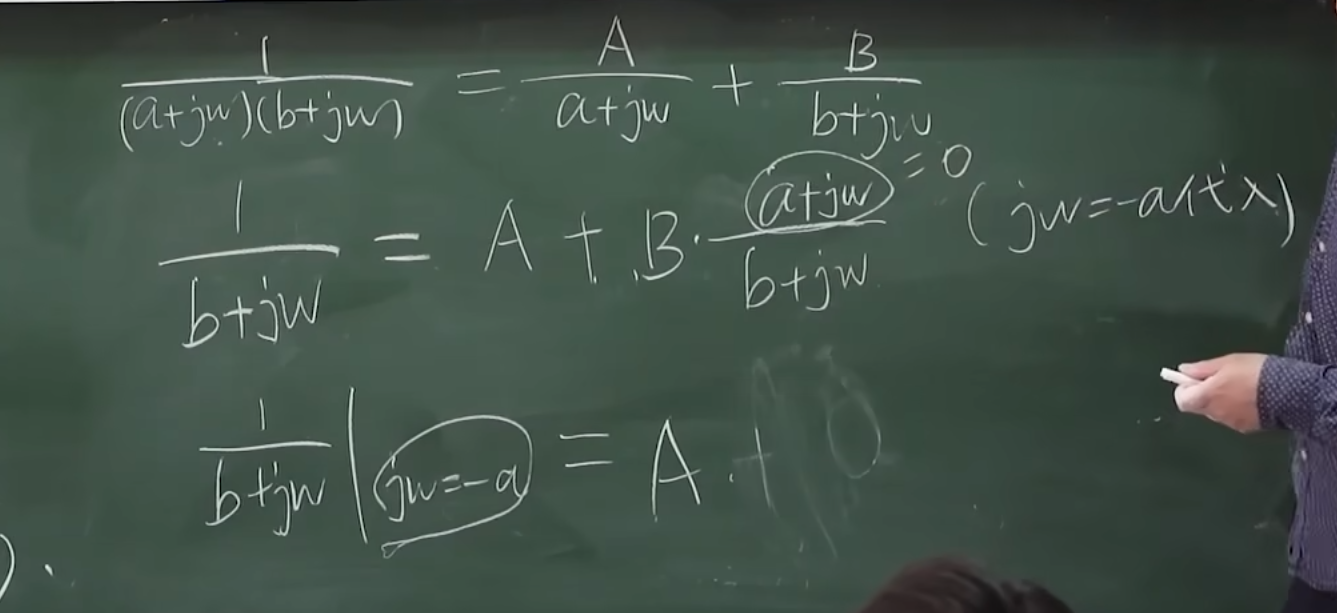 1/((a+jw)(b+jw)) = A/(a+jw) + B/(b+jw)
1/(b+jw) = A + B·(a+jw)/(b+jw) =0 (jw=-a代入)
1/(b+jw) | jw=-a = A